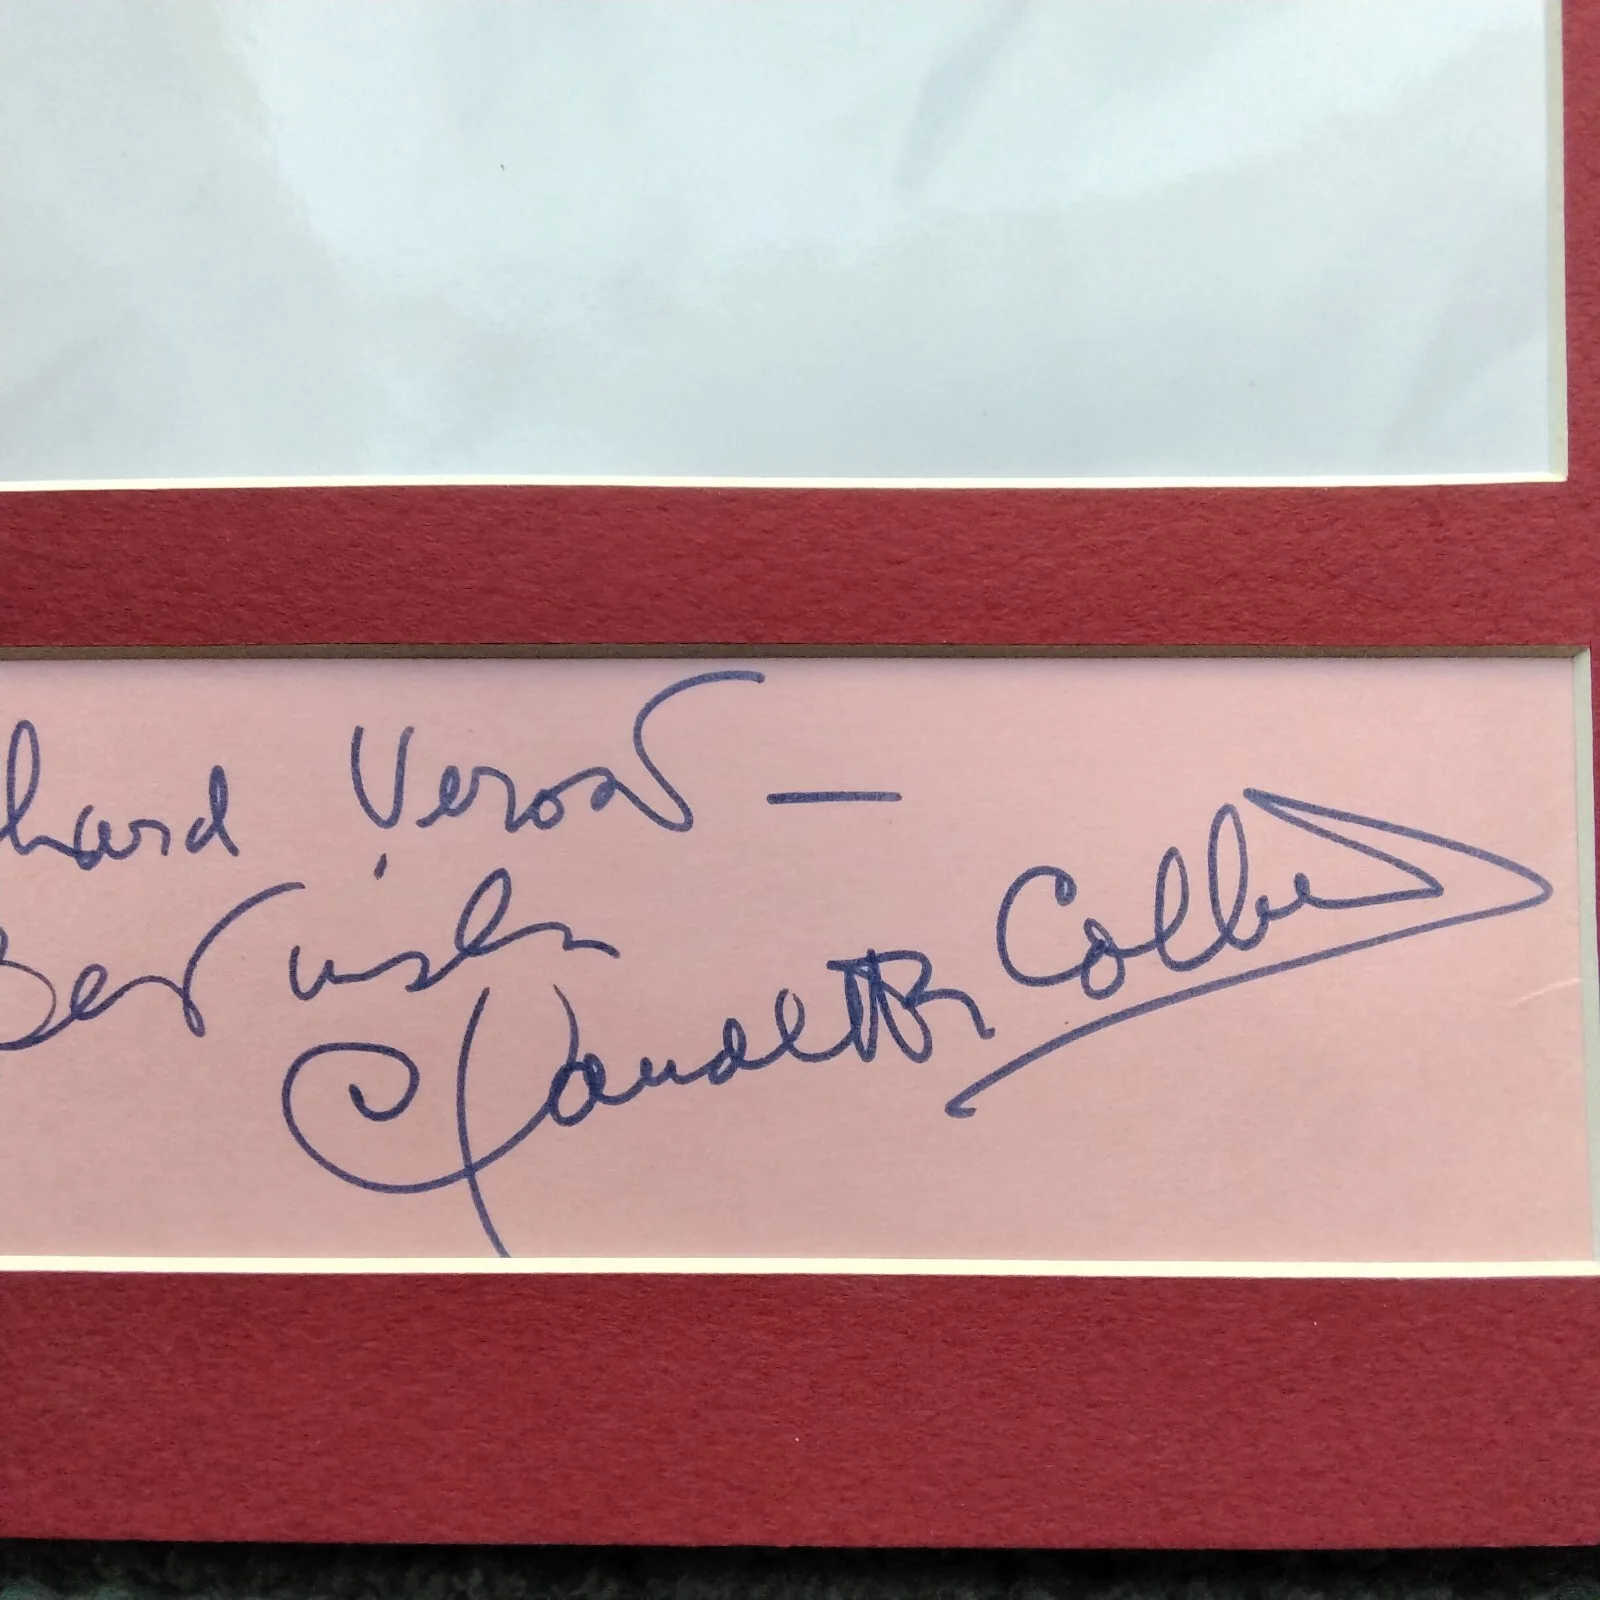 hard Verost —
Best wishes
Claudette Colbert